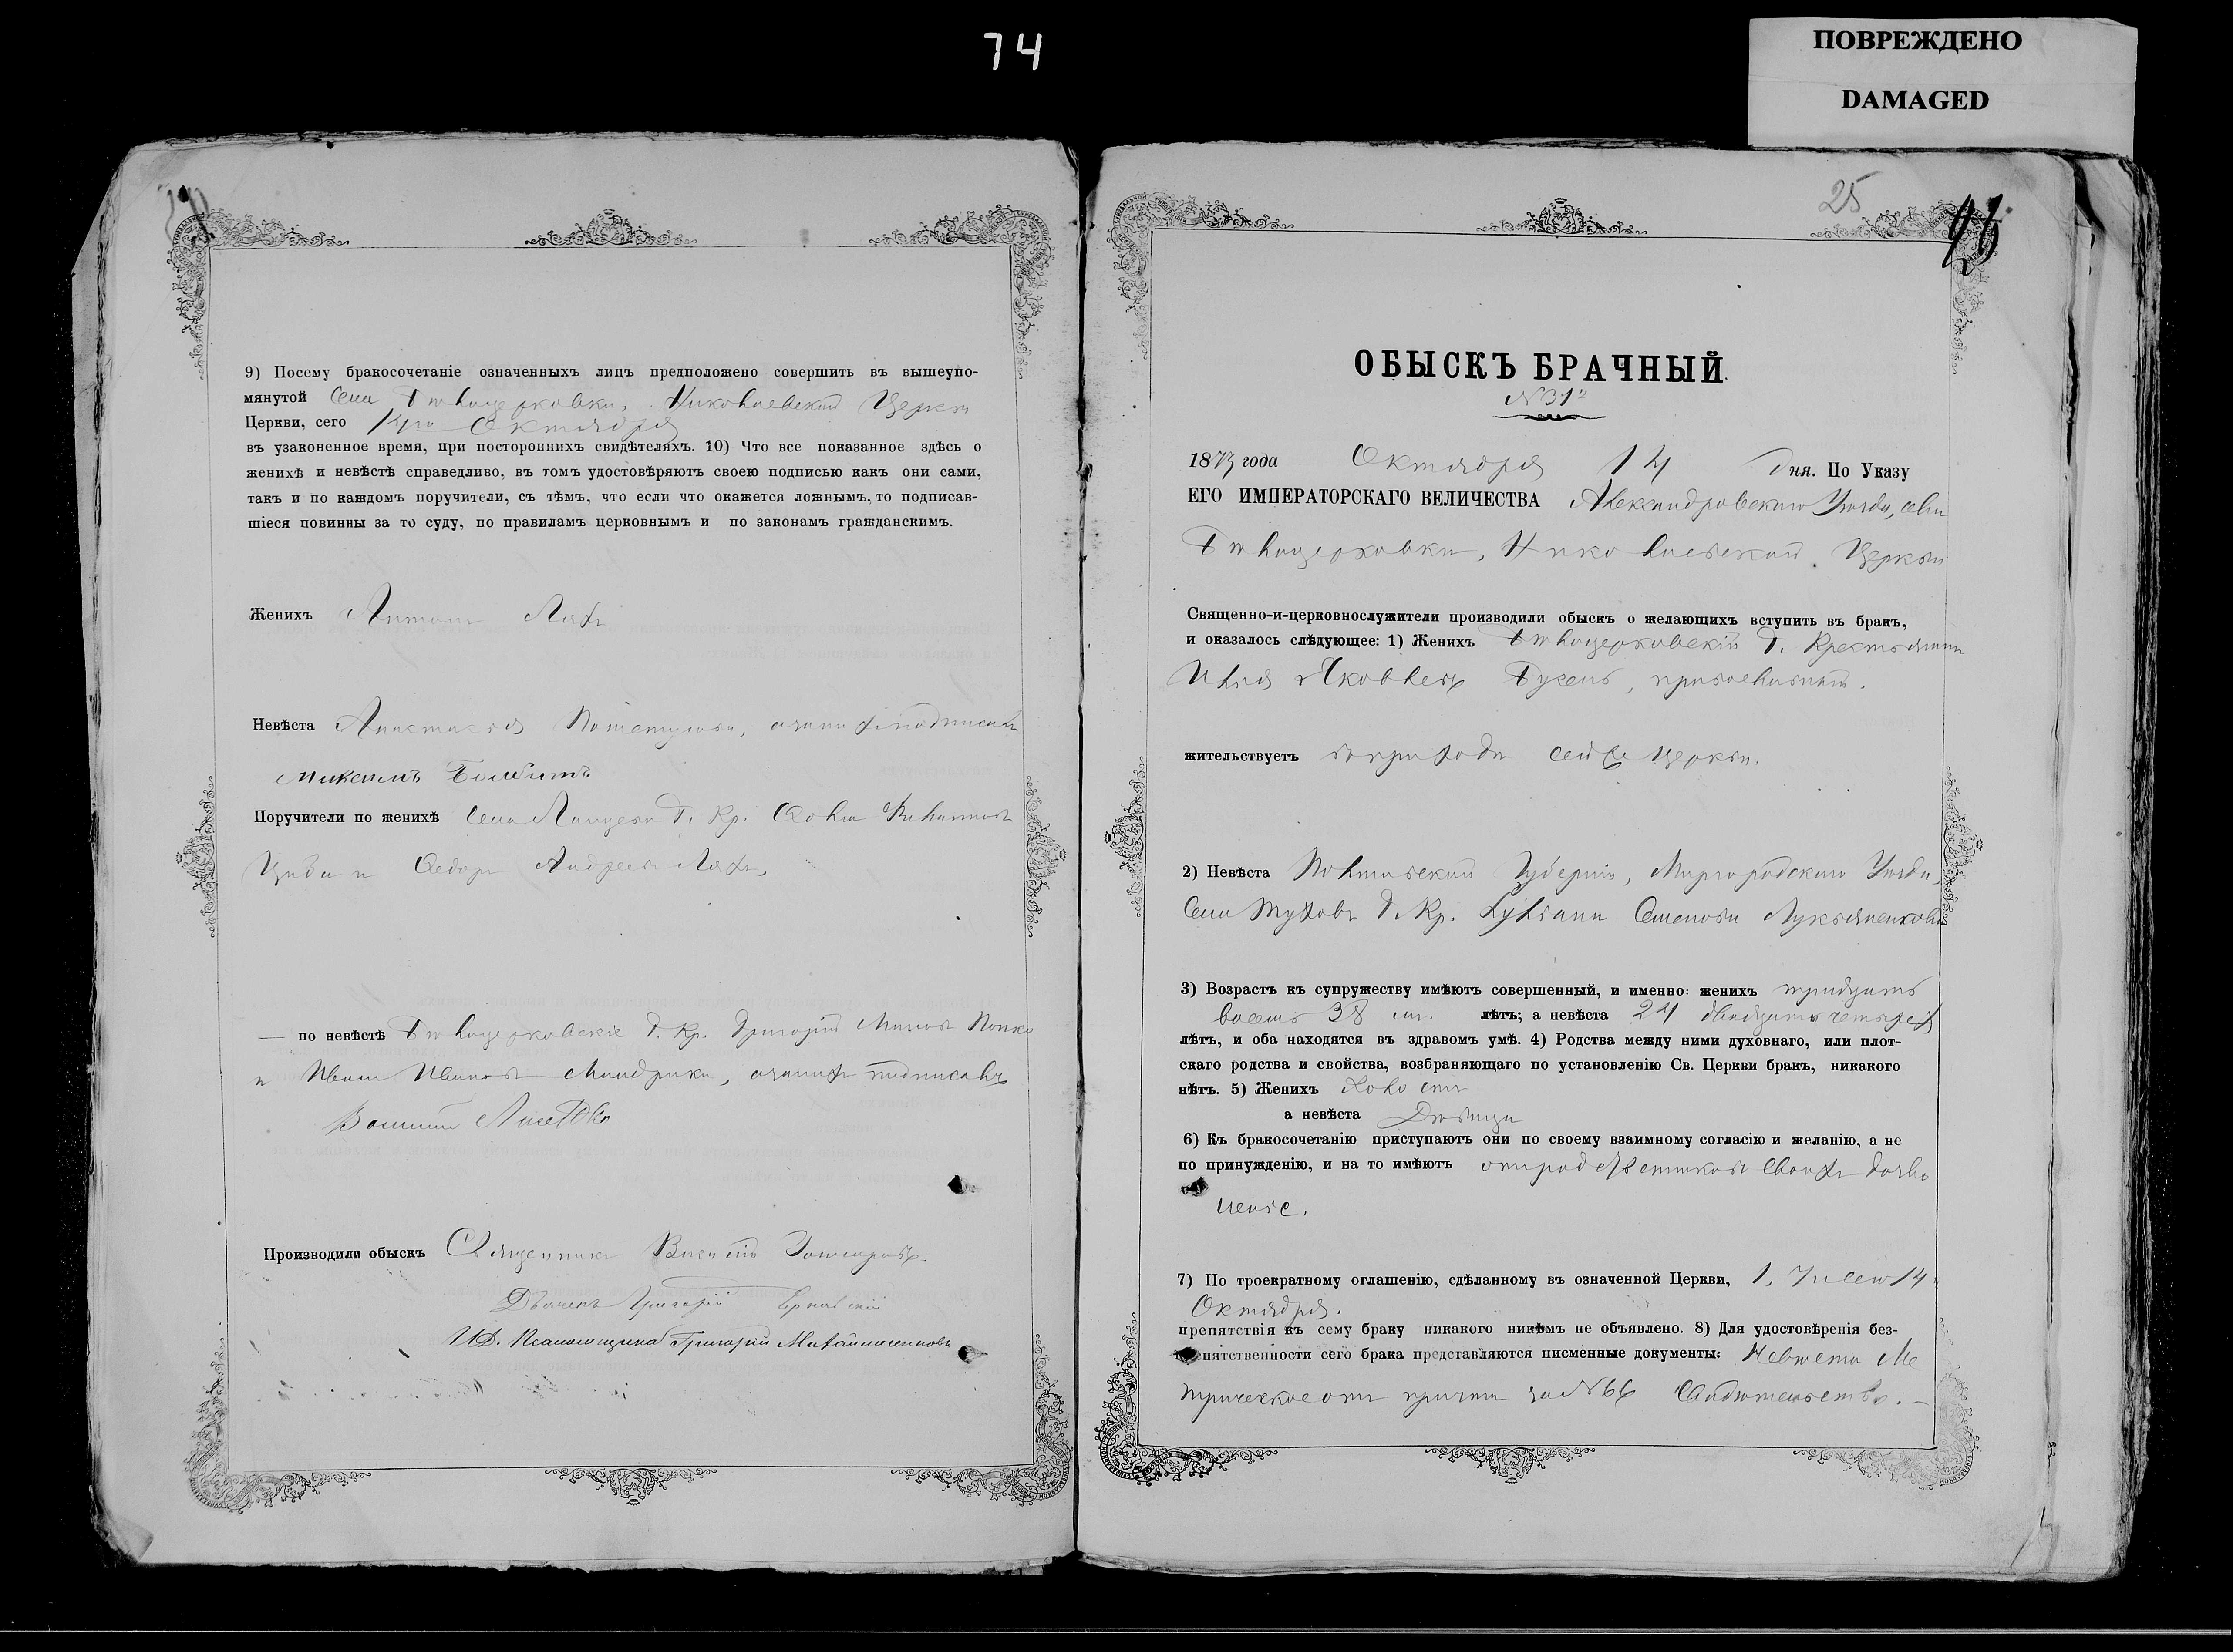 74
ПОВРЕЖДЕНО
DAMAGED
9) Посему бракосочетаніе означенныхъ лицъ предположено совершить въ вышеупо-
мянутой Села Бѣлоцерковки, Николаевской Церкви
Церкви, сего 14го Октября
въ узаконенное время, при постороннихъ свидѣтеляхъ. 10) Что все показанное здѣсь о
женихѣ и невѣстѣ справедливо, въ томъ удостовѣряютъ своею подписью какъ они сами,
такъ и по каждомъ поручители, съ тѣмъ, что если что окажется ложнымъ, то подписав-
шіеся повинны за то суду, по правиламъ церковнымъ и по законамъ гражданскимъ.
Женихъ Антонъ Ляхъ
Невѣста Анастасія
Максимъ
Поручители по женихѣ Села Г. Кр.
и Ѳедоръ Андреевъ Ляхъ,
— по невѣстѣ Бѣлоцерковскіе Г. Кр. Григорій
и Иванъ Ивановъ Мандрыка, а за нихъ подписалъ
Производили обыскъ Священникъ Василій
Дьячекъ Григорій
И.Д. Псаломщика Григорій Михайличенковъ
25
ОБЫСКЪ БРАЧНЫЙ
№ 31й
1873 года Октября 14 дня. По Указу
ЕГО ИМПЕРАТОРСКАГО ВЕЛИЧЕСТВА Александровскаго Уѣзда, села
Бѣлоцерковки, Николаевской Церкви
Священно-и-церковнослужители производили обыскъ о желающихъ вступить въ бракъ,
и оказалось слѣдующее: 1) Женихъ Бѣлоцерковскій Г. Крестьянинъ
Илья Яковлевъ Гусевъ, православный.
жительствуетъ въ приходѣ сей же Церкви.
2) Невѣста Полтавской Губерніи, Миргородскаго Уѣзда,
Села Г. Кр. Ульяна Семенова Лукьяненкова
3) Возрастъ къ супружеству имѣютъ совершенный, и именно: женихъ тридцать
восемь 38 лѣтъ; а невѣста 24 двадцать четыре
лѣтъ, и оба находятся въ здравомъ умѣ. 4) Родства между ними духовнаго, или плот-
скаго родства и свойства, возбраняющаго по установленію Св. Церкви бракъ, никакого
нѣтъ. 5) Женихъ Холостъ
а невѣста Дѣвица
6) Къ бракосочетанію приступаютъ они по своему взаимному согласію и желанію, а не
по принужденію, и на то имѣютъ отъ родственниковъ своихъ дозво
леніе.
7) По троекратному оглашенію, сдѣланному въ означенной Церкви, 1, 7 и сего 14
Октября.
препятствія къ сему браку никакого никѣмъ не объявлено. 8) Для удостовѣренія без-
пятственности сего брака представляются писменные документы: Невѣста Ме
трическое отъ причта за № 66 Свидѣтельство. —